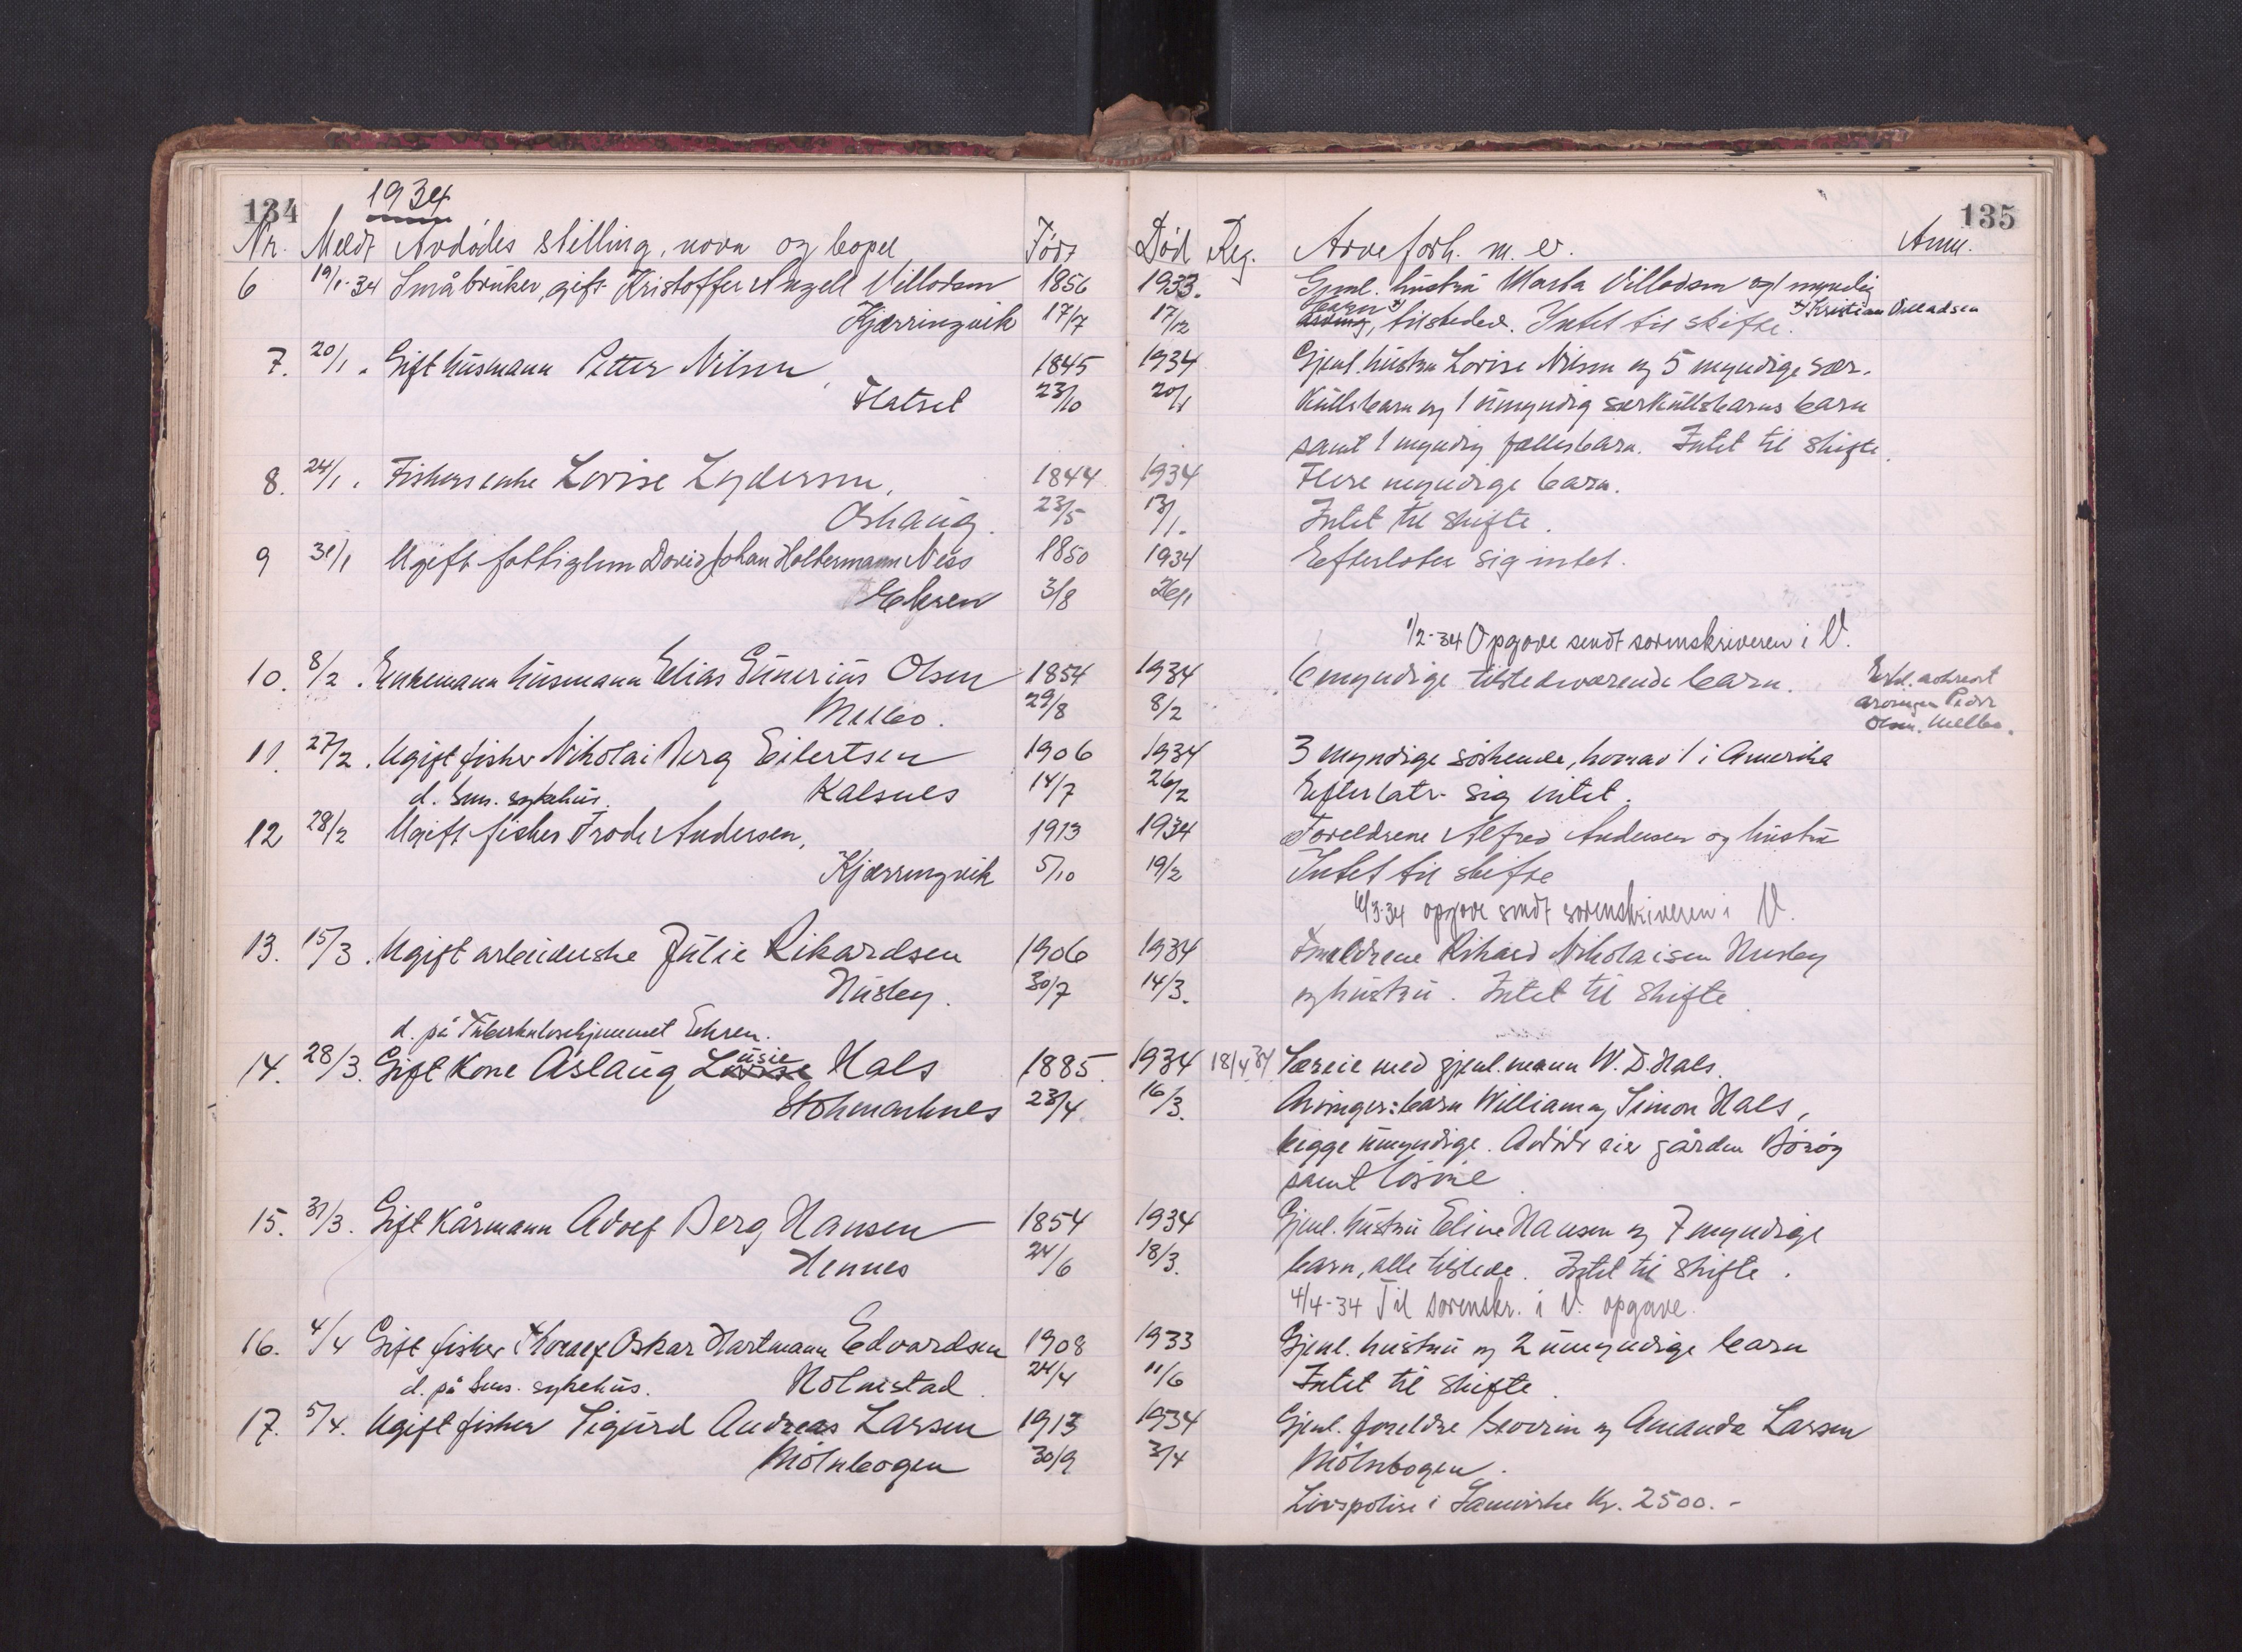 134
1934
Nr. Meldt Avdødes stilling, navn og bopel Født
6 19/1-34 Småbruker, gift Kristoffer Angell Villadsen 1856
Kjærringvik 17/7
7. 20/1. Gift husmann Petter Nilsen, 1845
Flatset 23/10
8. 24/1. Fiskers enke Lovise Lydersen, 1844
Oshaug. 23/5
9 31/1 Ugift fattiglem David Johan Holtermann Ness 1850
Ekren 3/8
10. 8/2. Enkemann husmann Elias Gunerius Olsen 1854
Melbo. 29/8
11. 27/2. Ugift fisker Nikolai Berg Eilertsen 1906
d. Smn. sykehus. Kalsnes 14/7
12 28/2 Ugift fisker Frode Andersen, 1913
Kjærringvik 5/10
13. 15/3. Ugift arbeiderske Julie Rikardsen 1906
Husby. 30/7
d. på Tuberkulosehjemmet Ekren.
14. 28/3. Gift kone Aslaug Lovise usie Hals 1885
Stokmarknes 23/4
15. 31/3. Gift kårmann Adolf Berg Hansen 1854
Hennes 24/6
16. 4/4 Gift fisker Thoralf Oskar Hartmann Edvardsen 1908
d. på Smn. sykehus. Holmstad. 24/4
17. 5/4. Ugift fisker Sigurd Andreas Larsen 1913
Mølnbogen 30/9
135
Død Reg. Arveforh. m. v. Anm.
1933. Gjenl. hustru Marta Villadsen og 1 myndig
17/12 arving, barn x) tilstede. Intet til skifte. x) Kristian Villadsen
1934 Gjenl. hustru Lovise Nilsen og 5 myndige sær-
20/1 kullsbarn og 1 umyndig særkullsbarns barn
samt 1 myndig fellesbarn. Intet til skifte.
1934 Flere myndige barn.
13/1. Intet til skifte.
1934 Efterlater sig intet.
26/1
1/2-34 Opgave sendt sorenskriveren i V.
1934 6 myndige tilstedeværende barn.
8/2 arvingen Peder
Olsen, Melbo.
1934 3 myndige søskende, hvorav 1 i Amerika
26/2 Efterlater sig intet.
1934 Foreldrene Alfred Andersen og hustru
19/2 Intet til skifte
6/3-34 opgave sendt sorenskriveren i V.
1934 Foreldrene Rikard Nikolaisen Husby
14/3. og hustru. Intet til skifte.
1934 18/4 34 Særeie med gjenl. mann W. D. Hals.
16/3. Arvinger: barn William og Simon Hals,
begge umyndige. Avdøde eier gården Børøy
samt løsøre
1934 Gjenl. hustru Eline Hansen og 7 myndige
18/3. barn, alle tilstede. Intet til skifte.
4/4-34 Til sorenskr. i V. opgave.
1933 Gjenl. hustru og 2 umyndige barn
11/6 Intet til skifte.
1934 Gjenl. foreldre Severin og Amanda Larsen
3/4 Mølnbogen.
Livspolise i Samvirke kr. 2500.-